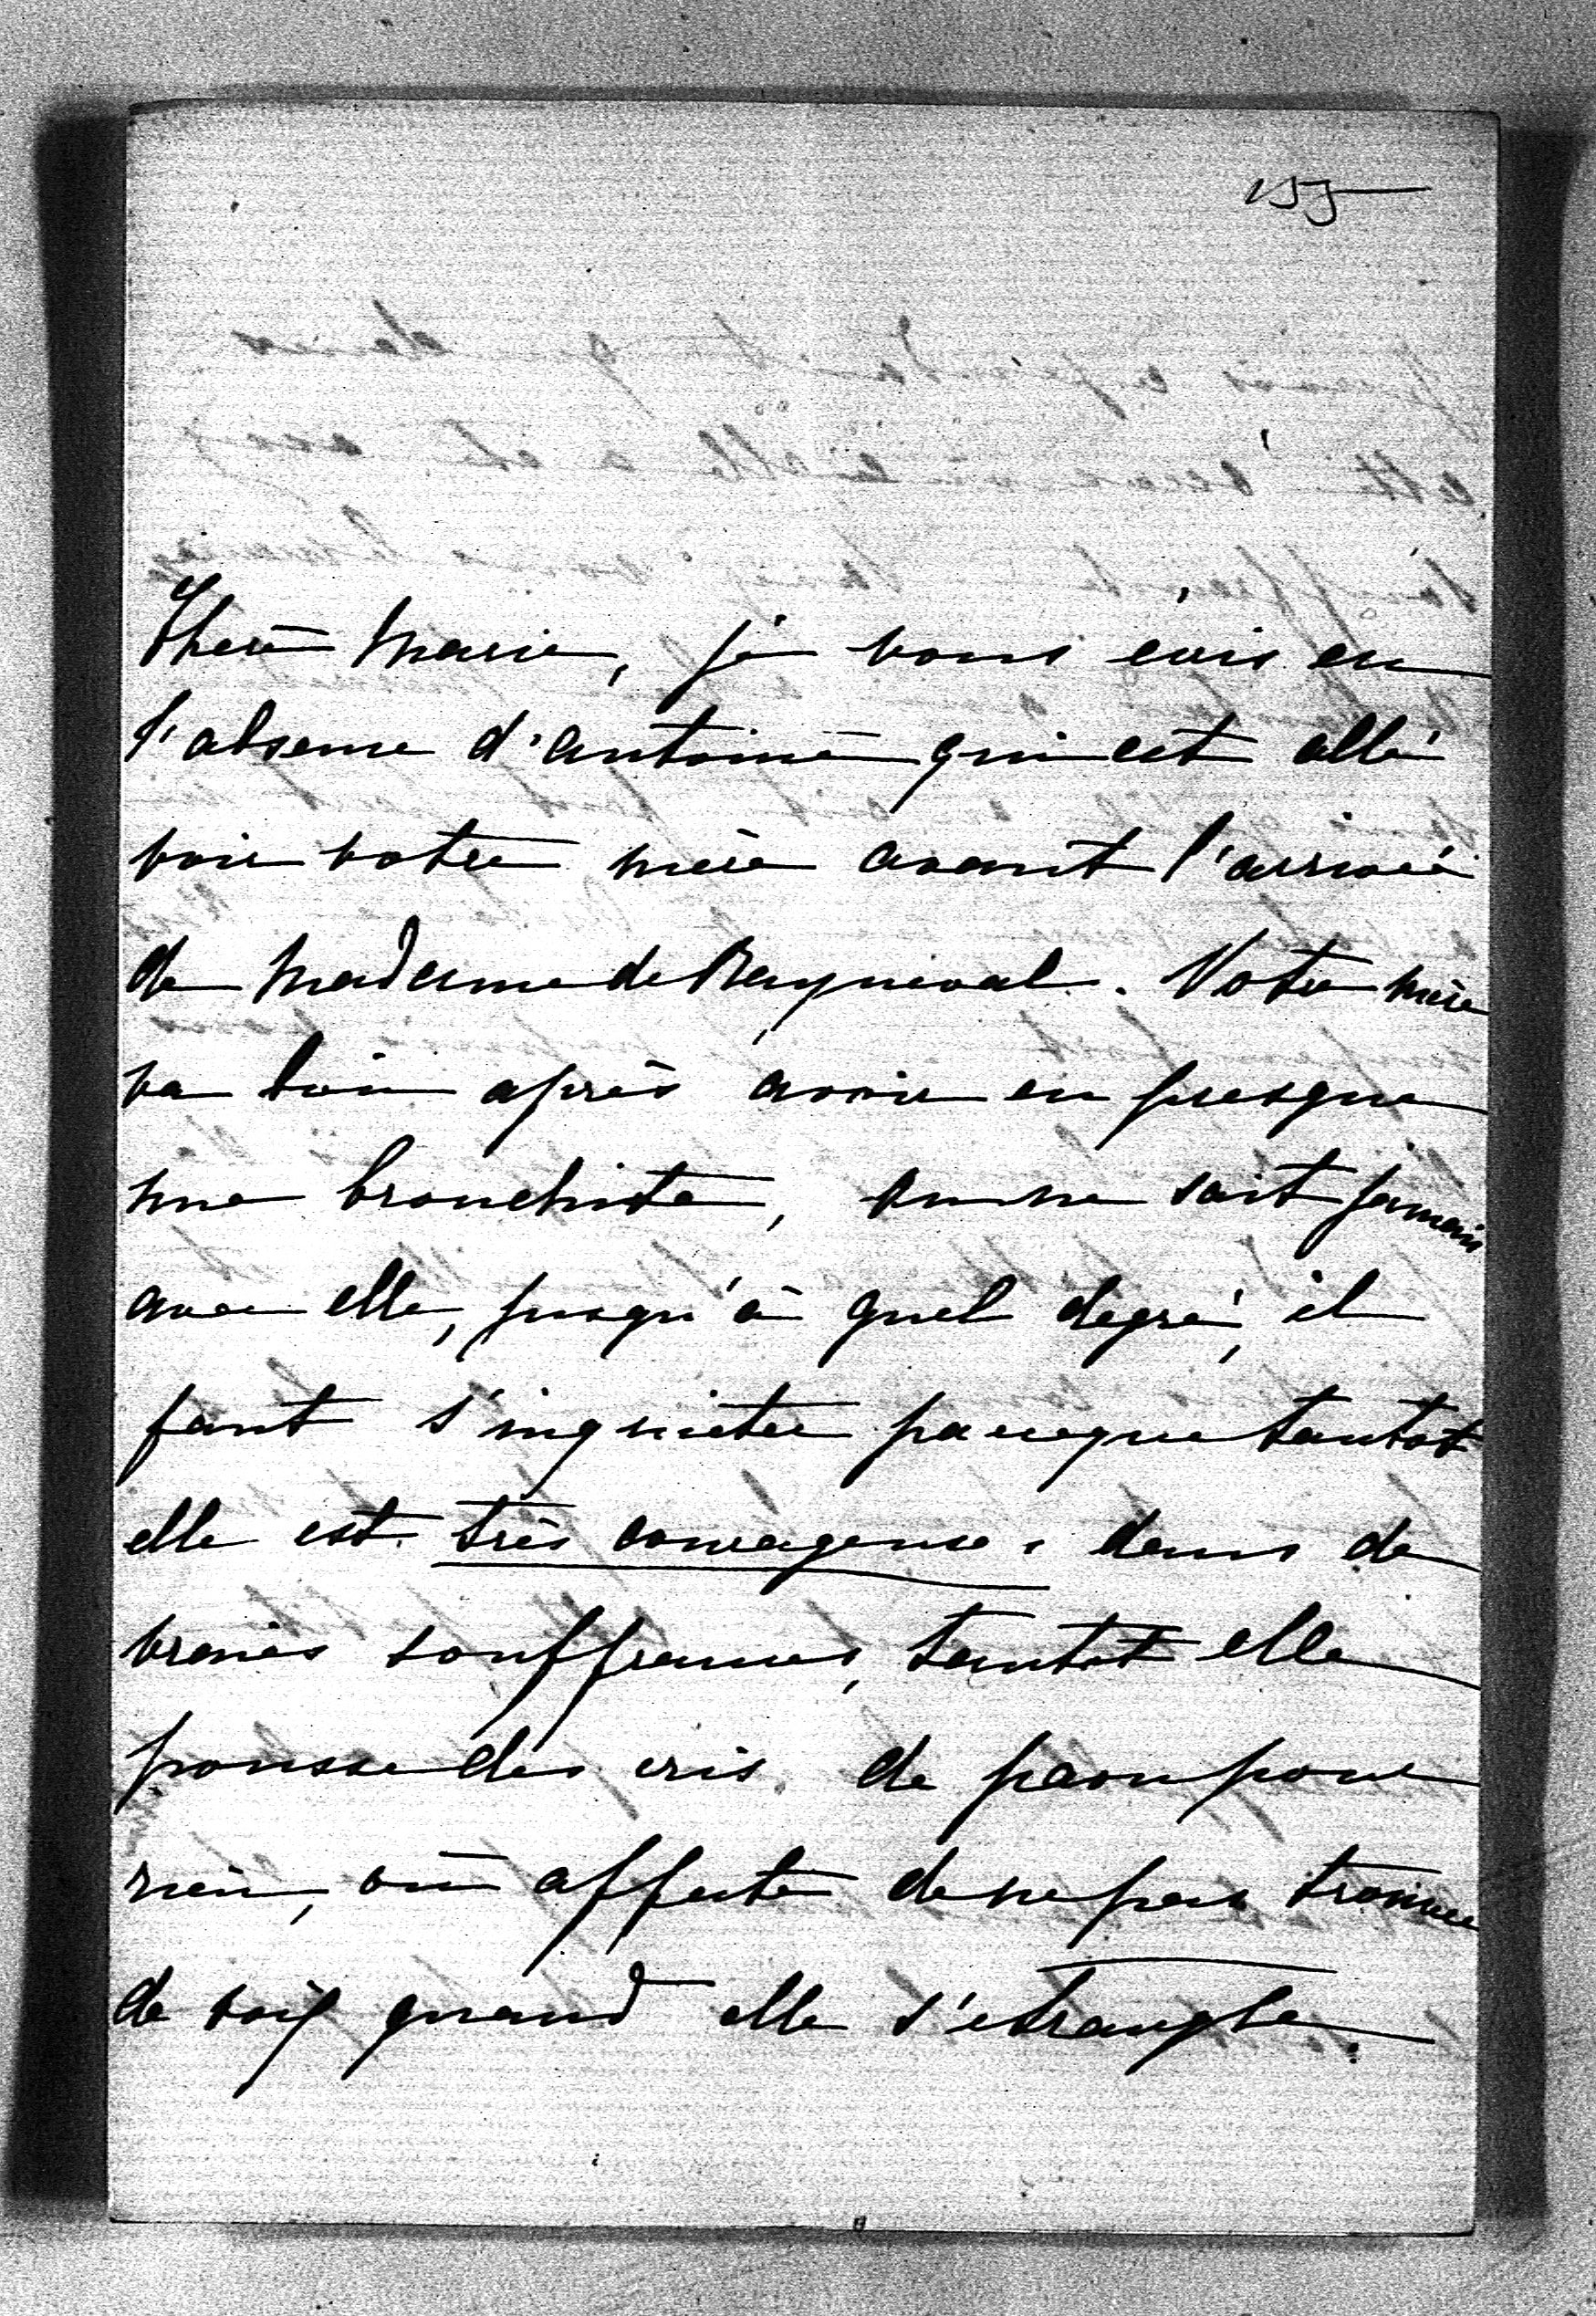 155
Chère Marie, je vous écris en
l'absence d'Antoine qui est allé
voir votre mère avant l'arrivée
de Madame de Rayneval. Votre mère
va bien après avoir eu presque
une bronchite, on ne sait jamais
avec elle, jusqu'à quel degré, il
faut s'inquieter parceque tantot
elle est très courageuse dans de
vraies souffrances, tantot elle
pousse des cris de paon pour
rien, ou affecte de ne pas trouver
de soif quand elle s'etrangle.